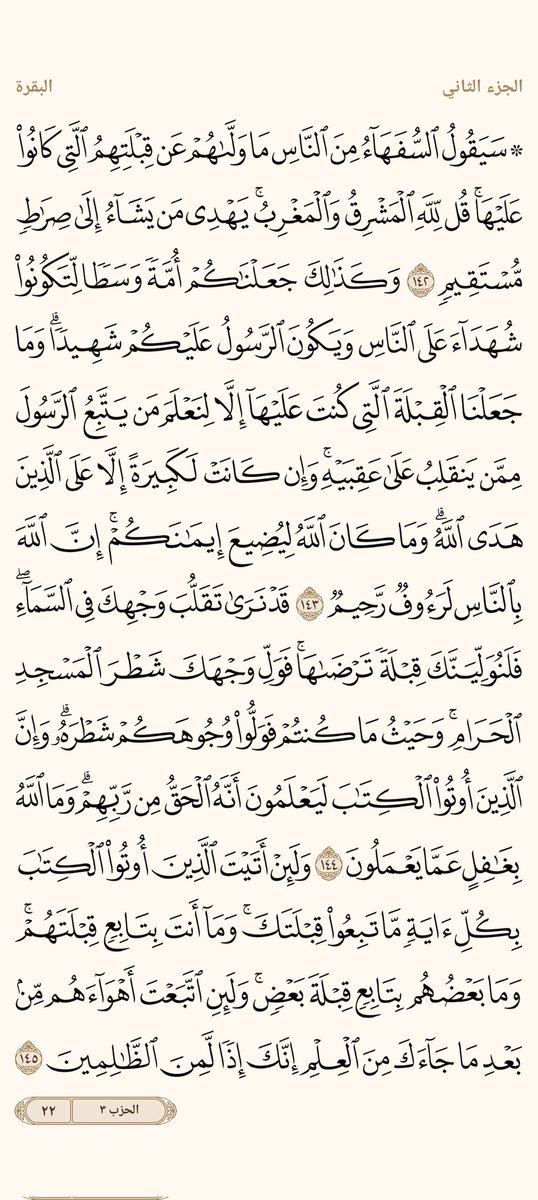 الجزء الثاني
البقرة
۞ سَيَقُولُ ٱلسُّفَهَآءُ مِنَ ٱلنَّاسِ مَا وَلَّىٰهُمۡ عَن قِبۡلَتِهِمُ ٱلَّتِي كَانُواْ
عَلَيۡهَاۚ قُل لِّلَّهِ ٱلۡمَشۡرِقُ وَٱلۡمَغۡرِبُۚ يَهۡدِي مَن يَشَآءُ إِلَىٰ صِرَٰطٖ
مُّسۡتَقِيمٖ ١٤٢ وَكَذَٰلِكَ جَعَلۡنَٰكُمۡ أُمَّةٗ وَسَطٗا لِّتَكُونُواْ
شُهَدَآءَ عَلَى ٱلنَّاسِ وَيَكُونَ ٱلرَّسُولُ عَلَيۡكُمۡ شَهِيدٗاۗ وَمَا
جَعَلۡنَا ٱلۡقِبۡلَةَ ٱلَّتِي كُنتَ عَلَيۡهَآ إِلَّا لِنَعۡلَمَ مَن يَتَّبِعُ ٱلرَّسُولَ
مِمَّن يَنقَلِبُ عَلَىٰ عَقِبَيۡهِۚ وَإِن كَانَتۡ لَكَبِيرَةً إِلَّا عَلَى ٱلَّذِينَ
هَدَى ٱللَّهُۗ وَمَا كَانَ ٱللَّهُ لِيُضِيعَ إِيمَٰنَكُمۡۚ إِنَّ ٱللَّهَ
بِٱلنَّاسِ لَرَءُوفٞ رَّحِيمٞ ١٤٣ قَدۡ نَرَىٰ تَقَلُّبَ وَجۡهِكَ فِي ٱلسَّمَآءِۖ
فَلَنُوَلِّيَنَّكَ قِبۡلَةٗ تَرۡضَىٰهَاۚ فَوَلِّ وَجۡهَكَ شَطۡرَ ٱلۡمَسۡجِدِ
ٱلۡحَرَامِۚ وَحَيۡثُ مَا كُنتُمۡ فَوَلُّواْ وُجُوهَكُمۡ شَطۡرَهُۥۗ وَإِنَّ
ٱلَّذِينَ أُوتُواْ ٱلۡكِتَٰبَ لَيَعۡلَمُونَ أَنَّهُ ٱلۡحَقُّ مِن رَّبِّهِمۡۗ وَمَا ٱللَّهُ
بِغَٰفِلٍ عَمَّا يَعۡمَلُونَ ١٤٤ وَلَئِنۡ أَتَيۡتَ ٱلَّذِينَ أُوتُواْ ٱلۡكِتَٰبَ
بِكُلِّ ءَايَةٖ مَّا تَبِعُواْ قِبۡلَتَكَۚ وَمَآ أَنتَ بِتَابِعٖ قِبۡلَتَهُمۡۚ
وَمَا بَعۡضُهُم بِتَابِعٖ قِبۡلَةَ بَعۡضٖۚ وَلَئِنِ ٱتَّبَعۡتَ أَهۡوَآءَهُم مِّنۢ
بَعۡدِ مَا جَآءَكَ مِنَ ٱلۡعِلۡمِ إِنَّكَ إِذٗا لَّمِنَ ٱلظَّٰلِمِينَ ١٤٥
الحزب ٣
٢٢